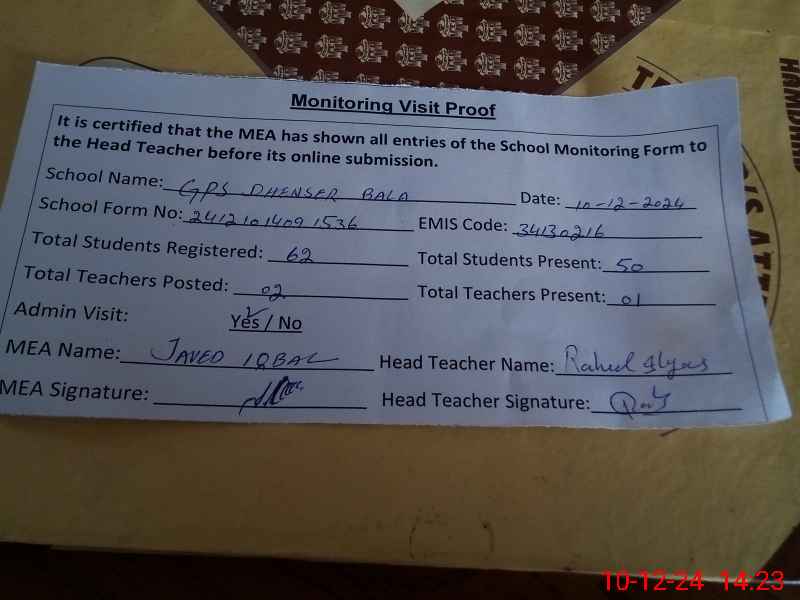 Monitoring Visit Proof
It is certified that the MEA has shown all entries of the School Monitoring Form to
the Head Teacher before its online submission.
School Name: GPS DHENSER BALA Date: 10-12-2024
School Form No: 24121014091536 EMIS Code: 34130216
Total Students Registered: 62 Total Students Present: 50
Total Teachers Posted: 02 Total Teachers Present: 01
Admin Visit: Yes / No
MEA Name: JAVED IQBAL Head Teacher Name: Raheel Ilyas
MEA Signature: Head Teacher Signature:
HAMDARD
10-12-24 14.23